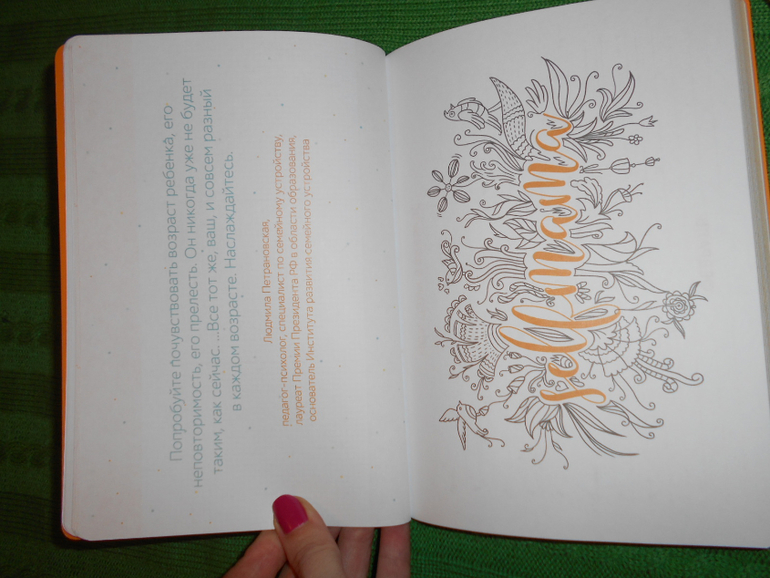 Попробуйте почувствовать возраст ребенка, его
неповторимость, его прелесть. Он никогда уже не будет
таким, как сейчас. ...Все тот же, ваш, и совсем разный
в каждом возрасте. Наслаждайтесь.
Людмила Петрановская,
педагог-психолог, специалист по семейному устройству,
лауреат Премии Президента РФ в области образования,
основатель Института развития семейного устройства
selfmama